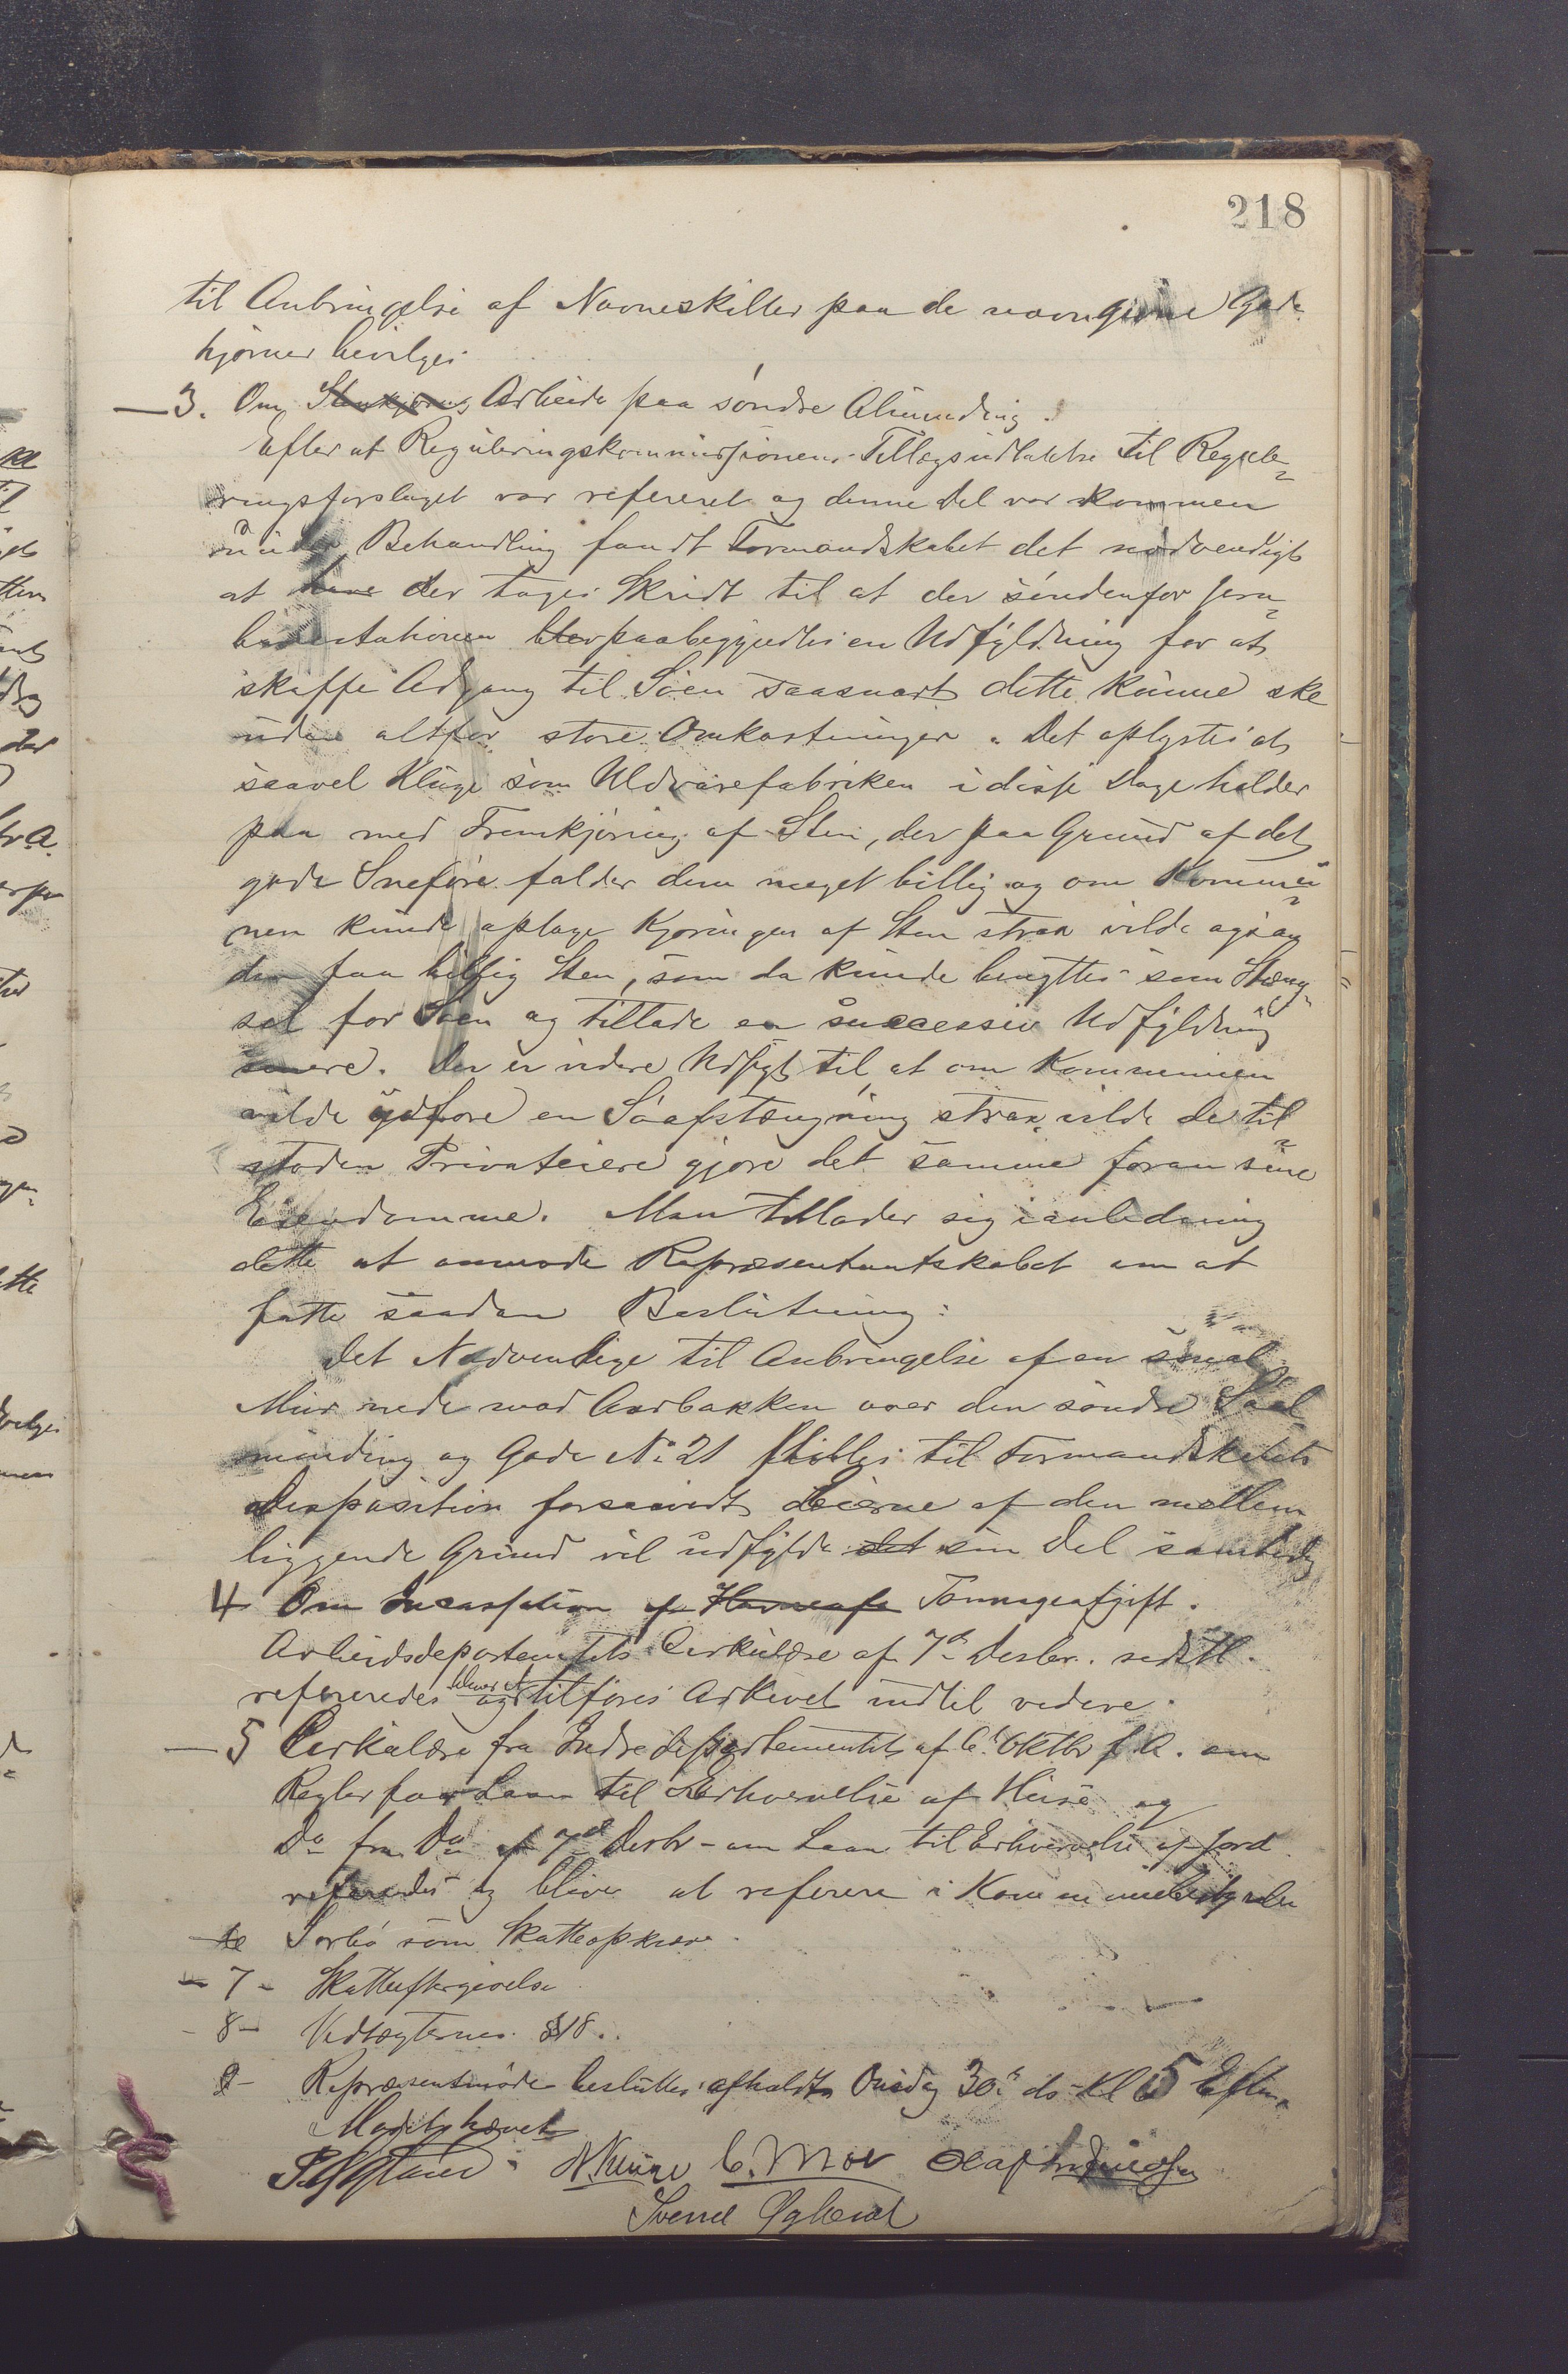 218
til Anbringelse af Navneskilter paa de navngivne Gade
hjørner bevilges.
3. Om Stenkjøring Arbeide paa søndre Almending.
Efter at Reguleringskommissionens Tillægsudtalelse til Regule-
ringsforslaget var refereret og denne Del var kommen
under Behandling fandt Formandskabet det nødvendigt
at der toges Skridt til at der søndenfor Jern-
banestationen blev paabegyndtes en Udfyldning for at
skaffe Adgang til Søen saasnart dette kunne ske
uden altfor store Omkostninger. Det oplystes at
saavel Kluge som Uldvarefabriken i disse Dage holder
paa med Fremkjøring af Sten, der paa Grund af det
gode Sneføre falder dem meget billig og om Kommu-
nen kunde optage Kjøringen af Sten strax vilde ogsaa
den faa billig Sten, som da kunde benyttes som Stæng-
sel for Søen og tillade en successiv Udfyldning
senere. Der er videre Udsigt til, at om Kommunen
vilde udføre en Søafstængning strax, vilde de til-
stødende Privateiere gjøre det samme foran sine
Eiendomme. Man tillader sig i anledning
dette at anmode Repræsentantskabet om at
fatte saadan Beslutning:
Det Nødvendige til Anbringelse af en smal
Mur nede mod Aarbakken over den søndre Søal
minding og Gade No 21 stilles til Formandskabets
Disposition forsaavidt Eierne af den mellem
liggende Grund vil udfylde det sin Del samtidig
4 Om Incassation af Havneafg Tonnageafgift.
Arbeidsdepartemtets Cirkulære af 7de Desbr. sidstl.
refereredes og tilføres Arkivet indtil videre.
5 Cirkulære fra Indredepartementet af 6te Oktbr f. A. om
Regler for Laan til Erhvervelse af Huse og
Do fra Do af 7de Desbr - om Laan til Erhvervelse af Jord
referedes og bliver at referere i Kommunebestyrelsen
6 Sørbø som Skatteopkræver.
7 - Skatteeftergivelse
8 - Vedtægternes §18..
9 - Repræsentmøde besluttes afholdt Onsdag 30te ds Kl 5 Efterm
Mødet hævet
N. Kluge C. Moe Olaf
Svend